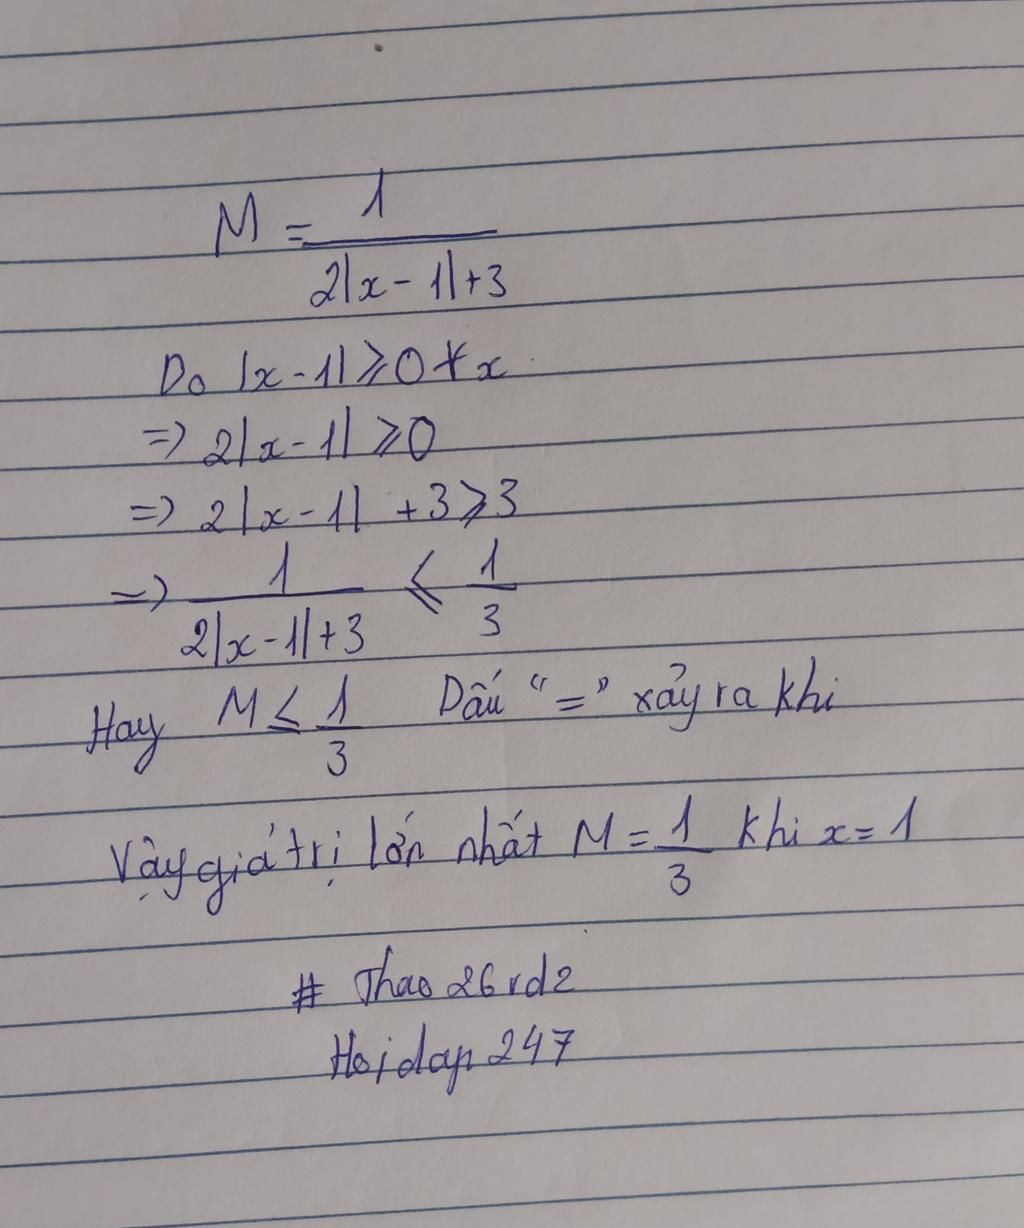 M = 1/(2|x-1|+3)
Do |x-1| ⩾ 0 ∀x
=> 2|x-1| ⩾ 0
=> 2|x-1| +3 ⩾ 3
=> 1/(2|x-1|+3) ⩽ 1/3
Hay M ≤ 1/3 Dấu "=" xảy ra khi
Vậy giá trị lớn nhất M = 1/3 khi x = 1
# Thao26rd2
Hoidap247